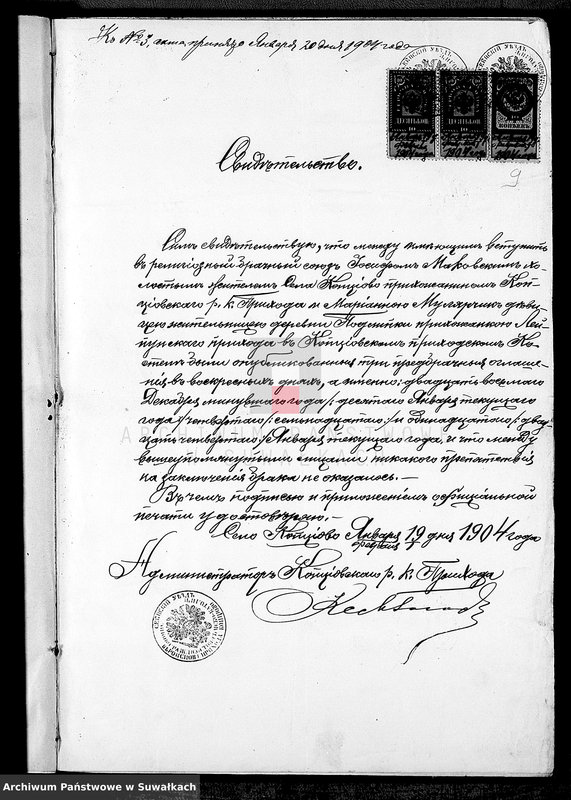 Къ № 3, акта, принято Января 20 дня 1904 года
9
Свидѣтельство.
Симъ свидѣтельствую, что между имѣющимъ вступить
въ религіозный брачный союзъ Іосифомъ Маковскимъ хо-
лостымъ жителемъ Села Копціово прихожаниномъ Коп-
ціовскаго р. к. Прихода и Маріанною дѣви-
цею жительницею деревни прихожанкою Лей-
пунскаго прихода въ Копціовскомъ приходскомъ Ко-
стелѣ были опубликованныя три предбрачныя оглаше-
нія въ воскресныхъ дняхъ, а именно: двадцать восьмаго
Декабря минувшаго года /: десятаго Января текущаго
года / четвертаго /: семнадцатаго :/ и одинадцатаго /: двад-
цать четвертаго :/ Января текущаго года, и что между
вышеупомянутыми лицами никакого препятствія
на заключенія брака не оказалось. —
Въ чемъ подписью и приложеніемъ оффиціальной
печати удостовѣряю. —
Село Копціово Января 19 дня 1904 года
Администраторъ Копціовскаго р. к. Прихода
ARCHIWUM PAŃSTWOWE
W SUWAŁKACH
Archiwum Państwowe w Suwałkach